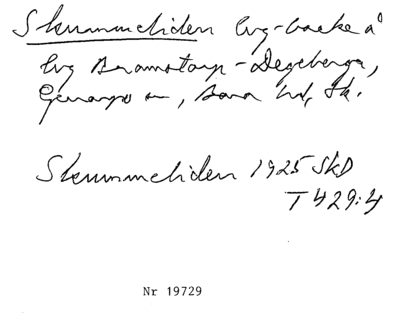 Skrummeliden lvg-backe å
lvg Bramstorp - Degeberga,
Genarps sn, Bara hd, Sk.
Skrummeliden 1925 SkD
T429:4
Nr 19729